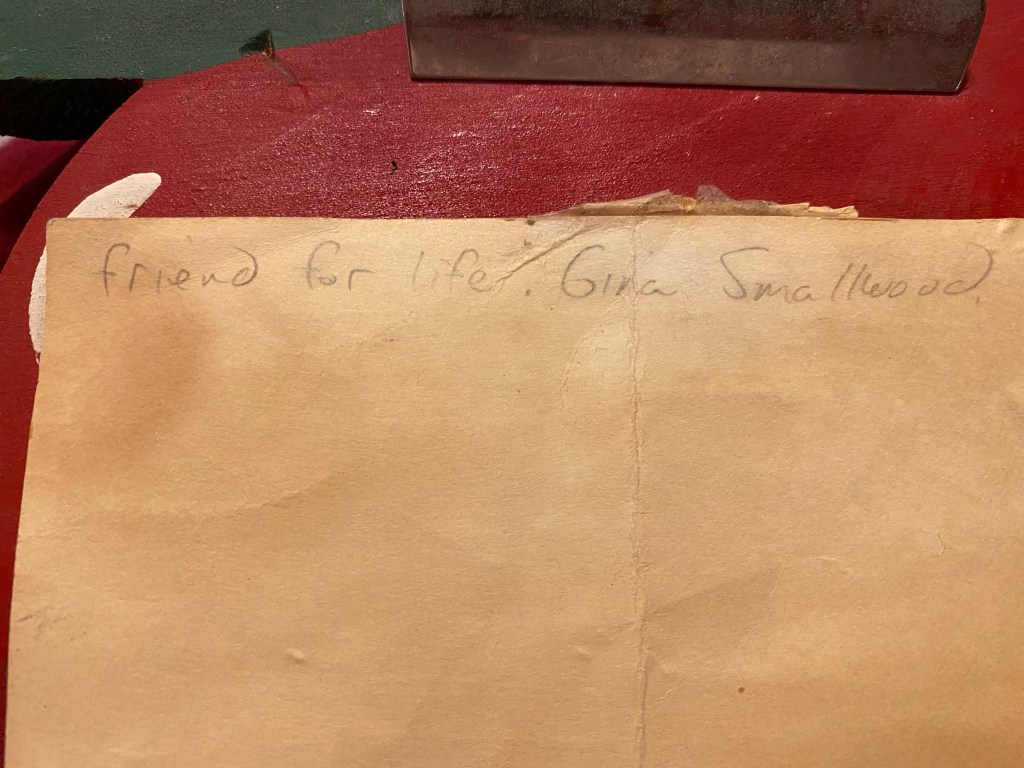 friend for life. Gina Smallwood.